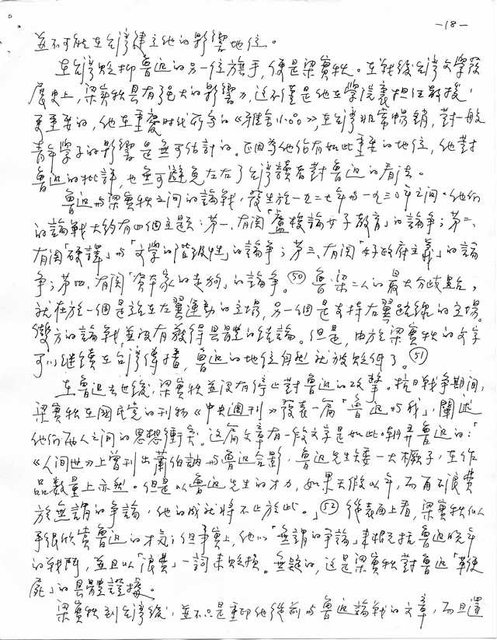 -18-
並不可能在台灣建立他的影響地位。
在台灣貶抑魯迅的另一位旗手，便是梁實秋。在戰後台灣文學發
展史上，梁實秋具有強大的影響力，這不僅是他在學院裏担任教授，
更重要的，他在重慶時代所寫的《雅舍小品》，在台灣非常暢銷，對一般
青年學子的影響是無可估計的。正因為他佔有如此重要的地位，他對
魯迅的批評，也無可避免左右了台灣讀者對魯迅的看法。
魯迅與梁實秋之間的論戰，發生於一九二七年與一九三〇年之間。他們
的論戰大約有四個主題：第一、有關「盧梭論女子教育」的論爭；第二、
有關「硬譯」與「文學的階級性」的論爭；第三、有關「好政府主義」的論
爭；第四、有關「資本家的走狗」的論爭。㊿ 魯梁二人的最大分歧點，
就在於一個是站在左翼運動的立場，另一個是支持右翼路線的立場。
雙方的論戰並沒有獲得具體的結論。但是，由於梁實秋的文字
可以繼續在台灣傳播，魯迅的地位自然就被貶低了。(51)
在魯迅去世後，梁實秋並沒有停止對魯迅的攻擊。抗日戰爭期間，
梁實秋在國民黨的刊物《中央週刊》發表一篇「魯迅與我」，闡述
他們兩人之間的思想衝突。這篇文章有一段文字是如此嘲弄魯迅的：「
《人間世》上曾刊出蕭伯納與魯迅合影，魯迅先生矮一大橛子，在作
品數量上亦然。但是以魯迅先生的才力，如果天假以年，而有不浪費
於無謂的爭論，他的成就將不止於此。」(52) 從表面上看，梁實秋似乎
很欣賞魯迅的才氣；但事實上，他以「無謂的爭論」來概括魯迅晚年
的戰鬥，並且以「浪費」一詞來貶損。無疑的，這是梁實秋對魯迅「鞭
屍」的具體證據。
梁實秋到台灣後，並不只是重印他從前與魯迅論戰的文章，而且還